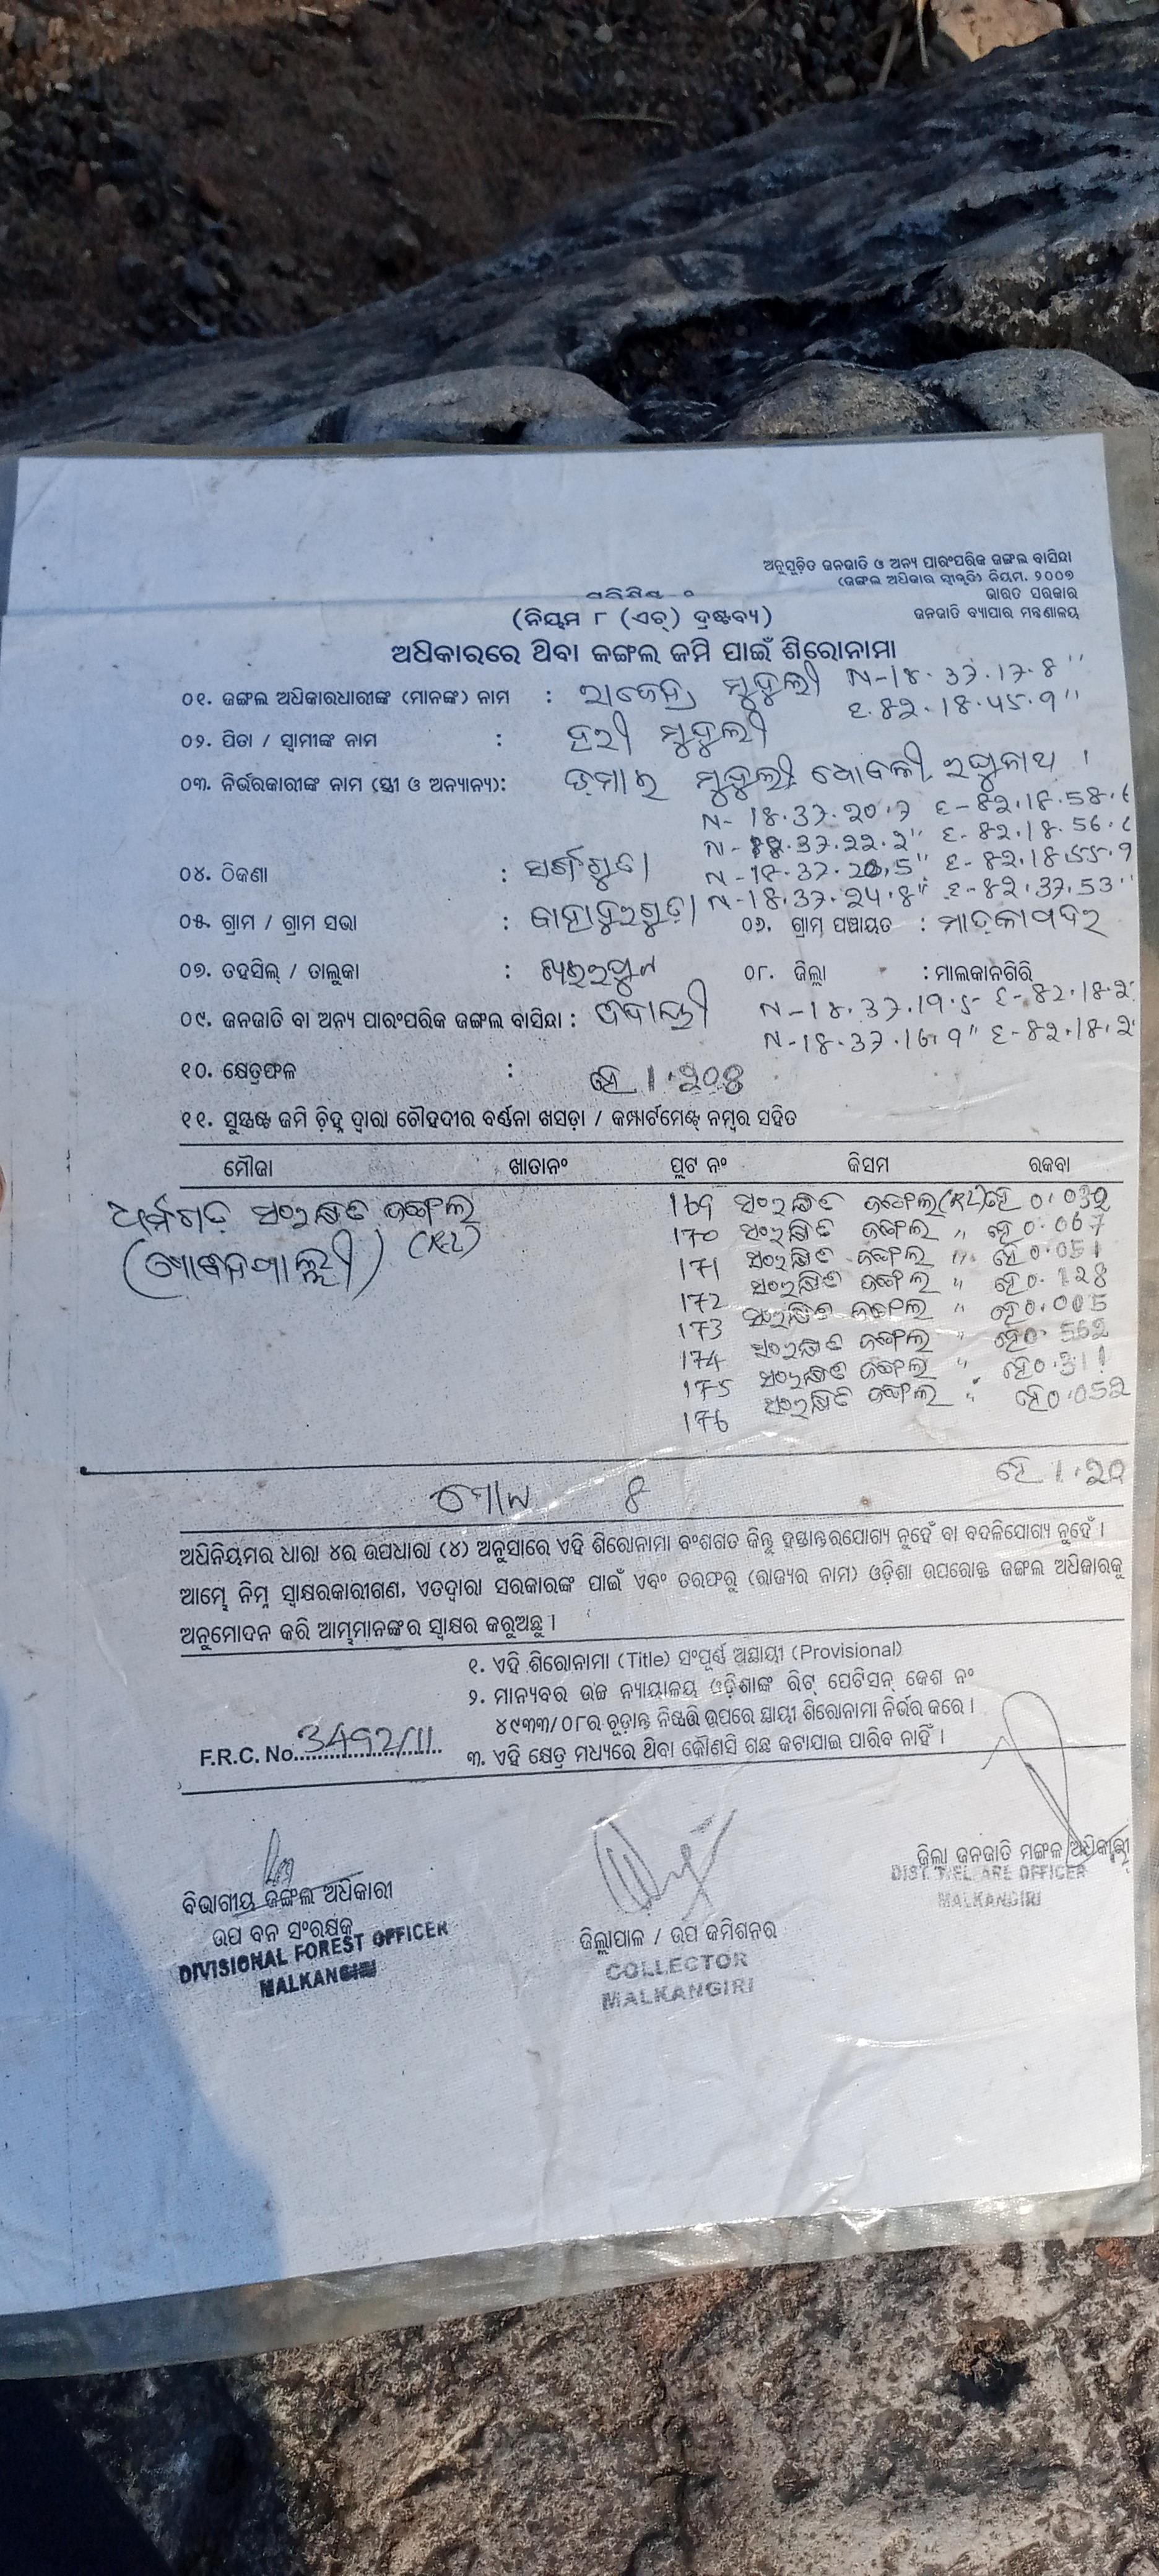 ଅନୁସୂଚିତ ଜନଜାତି ଓ ଅନ୍ୟ ପାରଂପରିକ ଜଙ୍ଗଲ ବାସିନ୍ଦା
(ଜଙ୍ଗଲ ଅଧିକାର ସ୍ୱୀକୃତି) ନିୟମ, ୨୦୦୭
ଭାରତ ସରକାର
ଜନଜାତି ବ୍ୟାପାର ମନ୍ତ୍ରଣାଳୟ
(ନିୟମ ୮ (ଏଚ୍) ଦ୍ରଷ୍ଟବ୍ୟ)
ଅଧିକାରରେ ଥିବା ଜଙ୍ଗଲ ଜମି ପାଇଁ ଶିରୋନାମା
୦୧. ଜଙ୍ଗଲ ଅଧିକାରଧାରୀଙ୍କ (ମାନଙ୍କ) ନାମ : ରାଜେନ୍ଦ୍ର ମୁଦୁଲୀ N-18.37.17.8"
E.82.18.45.9"
୦୨. ପିତା / ସ୍ୱାମୀଙ୍କ ନାମ : ହରୀ ମୁଦୁଲୀ
୦୩. ନିର୍ଭରକାରୀଙ୍କ ନାମ (ସ୍ତ୍ରୀ ଓ ଅନ୍ୟାନ୍ୟ): ଡମାଇ ମୁଦୁଲୀ, ଧୋବଳୀ, ରଘୁନାଥ ।
N-18.37.20.7 E-82.18.58.
37.22.2" E-82.18.56.
୦୪. ଠିକଣା : N-18.37. E-82.18.55.9
୦୫. ଗ୍ରାମ / ଗ୍ରାମ ସଭା : N-18.37.24.8" E-82.37.53"
୦୬. ଗ୍ରାମ ପଞ୍ଚାୟତ : ମାଟକାପଦର
୦୭. ତହସିଲ୍ / ତାଲୁକା : ୦୮. ଜିଲ୍ଲା : ମାଲକାନଗିରି
୦୯. ଜନଜାତି ବା ଅନ୍ୟ ପାରଂପରିକ ଜଙ୍ଗଲ ବାସିନ୍ଦା : N-18.37.19.5- E-82.18.2
N-18.37.16.9" E-82.18.2
୧୦. କ୍ଷେତ୍ରଫଳ : ହେ 1.208
୧୧. ସୁସ୍ପଷ୍ଟ ଜମି ଚିହ୍ନ ଦ୍ୱାରା ଚୌହଦୀର ବର୍ଣ୍ଣନା ଖସଡ଼ା / କମ୍ପାର୍ଟମେଣ୍ଟ୍ ନମ୍ବର ସହିତ
ମୌଜା ଖାତାନଂ ପ୍ଲଟ ନଂ କିସମ ରକବା
ଧର୍ମଗଡ଼ ସଂରକ୍ଷିତ ଜଙ୍ଗଲ 169 ସଂରକ୍ଷିତ ଜଙ୍ଗଲ ହେ 0.032
170 ସଂରକ୍ଷିତ ଜଙ୍ଗଲ " ହେ 0.067
171 ସଂରକ୍ଷିତ ଜଙ୍ଗଲ " ହେ 0.051
172 ସଂରକ୍ଷିତ ଜଙ୍ଗଲ " ହେ 0.128
173 ସଂରକ୍ଷିତ ଜଙ୍ଗଲ " ହେ 0.005
174 ସଂରକ୍ଷିତ ଜଙ୍ଗଲ " ହେ 0.562
175 ସଂରକ୍ଷିତ ଜଙ୍ଗଲ " ହେ 0.311
176 ସଂରକ୍ଷିତ ଜଙ୍ଗଲ " ହେ 0.052
ମୋଟ 8 ହେ 1.20
ଅଧିନିୟମର ଧାରା ୪ର ଉପଧାରା (୪) ଅନୁସାରେ ଏହି ଶିରୋନାମା ବଂଶଗତ କିନ୍ତୁ ହସ୍ତାନ୍ତରଯୋଗ୍ୟ ନୁହେଁ ବା ବଦଳିଯୋଗ୍ୟ ନୁହେଁ ।
ଆମ୍ଭେ ନିମ୍ନ ସ୍ୱାକ୍ଷରକାରୀଗଣ, ଏତଦ୍ୱାରା ସରକାରଙ୍କ ପାଇଁ ଏବଂ ତରଫରୁ (ରାଜ୍ୟର ନାମ) ଓଡ଼ିଶା ଉପରୋକ୍ତ ଜଙ୍ଗଲ ଅଧିକାରକୁ
ଅନୁମୋଦନ କରି ଆମ୍ଭମାନଙ୍କର ସ୍ୱାକ୍ଷର କରୁଅଛୁ ।
୧. ଏହି ଶିରୋନାମା (Title) ସଂପୂର୍ଣ୍ଣ ଅସ୍ଥାୟୀ (Provisional)
୨. ମାନ୍ୟବର ଉଚ୍ଚ ନ୍ୟାୟାଳୟ ଓଡ଼ିଶାଙ୍କ ରିଟ୍ ପେଟିସନ୍ କେଶ ନଂ
୪୯୩୩/୦୮ର ଚୂଡ଼ାନ୍ତ ନିଷ୍ପତ୍ତି ଉପରେ ସ୍ଥାୟୀ ଶିରୋନାମା ନିର୍ଭର କରେ ।
F.R.C. No. 3492/11 ୩. ଏହି କ୍ଷେତ୍ର ମଧ୍ୟରେ ଥିବା କୌଣସି ଗଛ କଟାଯାଇ ପାରିବ ନାହିଁ ।
ବିଭାଗୀୟ ଜଙ୍ଗଲ ଅଧିକାରୀ
ଉପ ବନ ସଂରକ୍ଷକ
DIVISIONAL FOREST OFFICER
MALKANGIRI
ଜିଲ୍ଲାପାଳ / ଉପ କମିଶନର
COLLECTOR
MALKANGIRI
ଜିଲ୍ଲା ଜନଜାତି ମଙ୍ଗଳ ଅଧିକାରୀ
DIST. WELFARE OFFICER
MALKANGIRI